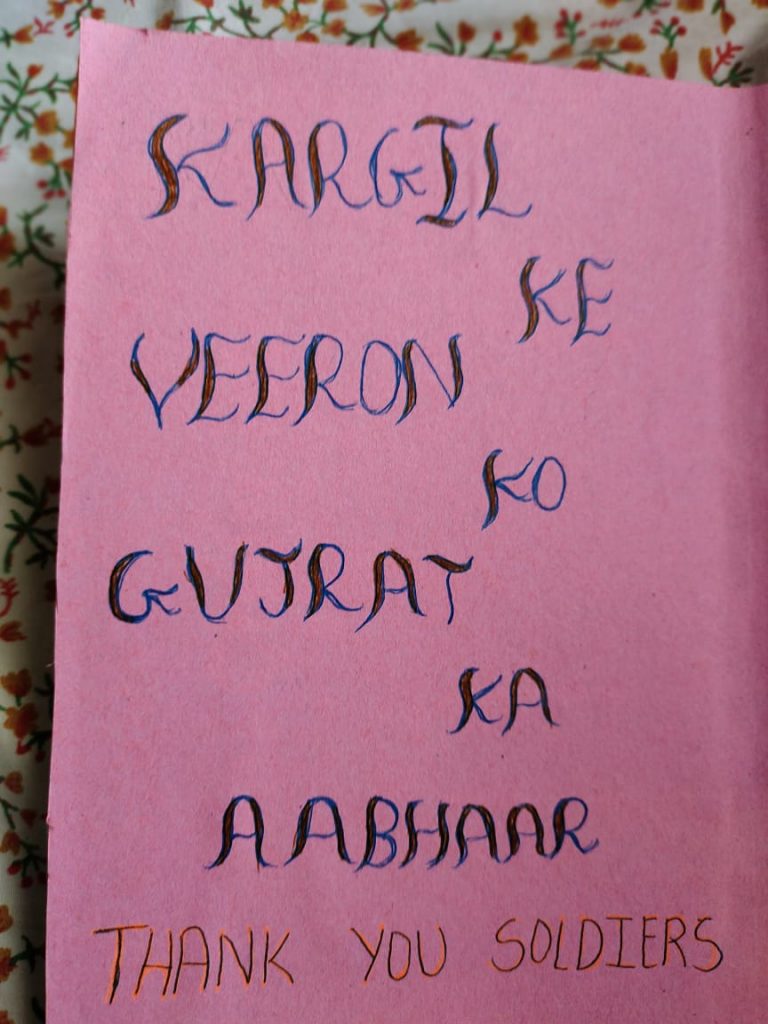 KARGIL
KE
VEERON
KO
GUJRAT
KA
AABHAAR
THANK YOU SOLDIERS